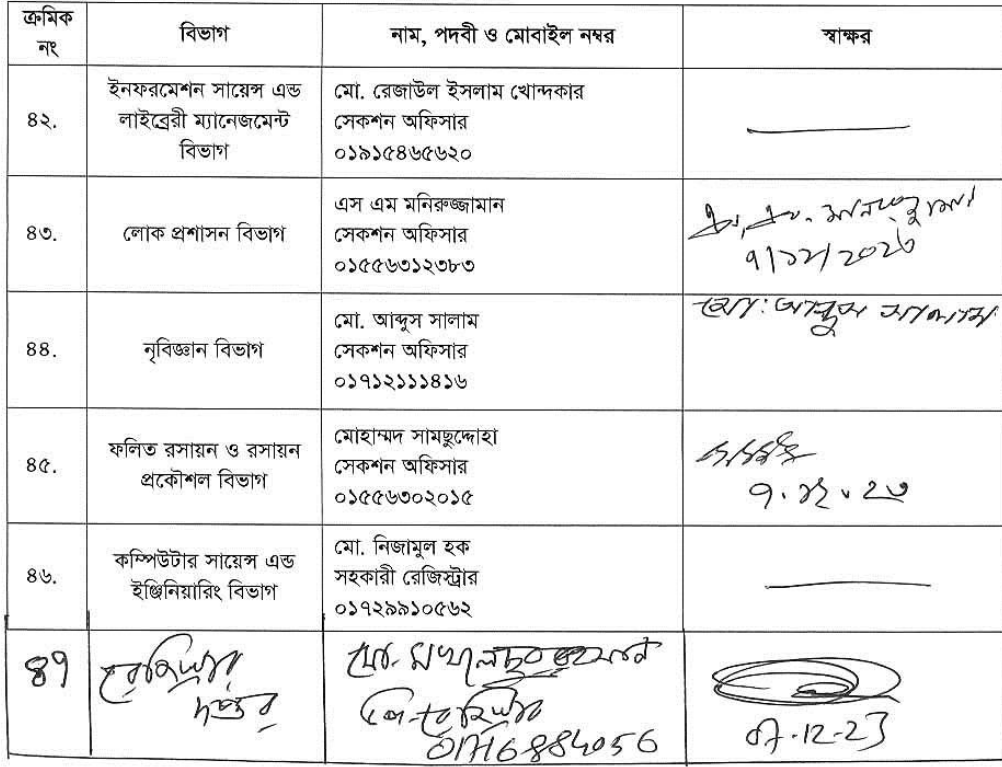 ক্রমিক নং
বিভাগ
নাম, পদবী ও মোবাইল নম্বর
স্বাক্ষর
৪২.
ইনফরমেশন সায়েন্স এন্ড
লাইব্রেরী ম্যানেজমেন্ট
বিভাগ
মো. রেজাউল ইসলাম খোন্দকার
সেকশন অফিসার
০১৯১৫৪৬৫৬২০
৪৩.
লোক প্রশাসন বিভাগ
এস এম মনিরুজ্জামান
সেকশন অফিসার
০১৫৫৬৩১২৩৮৩
৭/১২/২০২৩
৪৪.
নৃবিজ্ঞান বিভাগ
মো. আব্দুস সালাম
সেকশন অফিসার
০১৭১২১১১৪১৬
মো: আব্দুস সালাম
৪৫.
ফলিত রসায়ন ও রসায়ন
প্রকৌশল বিভাগ
মোহাম্মদ সামছুদ্দোহা
সেকশন অফিসার
০১৫৫৬৩০২০১৫
৭.১২.২৩
৪৬.
কম্পিউটার সায়েন্স এন্ড
ইঞ্জিনিয়ারিং বিভাগ
মো. নিজামুল হক
সহকারী রেজিস্ট্রার
০১৭২৯৯১০৫৬২
৪৭
রেজিস্ট্রার
দপ্তর
মো. রহমান
01716884056
07-12-23